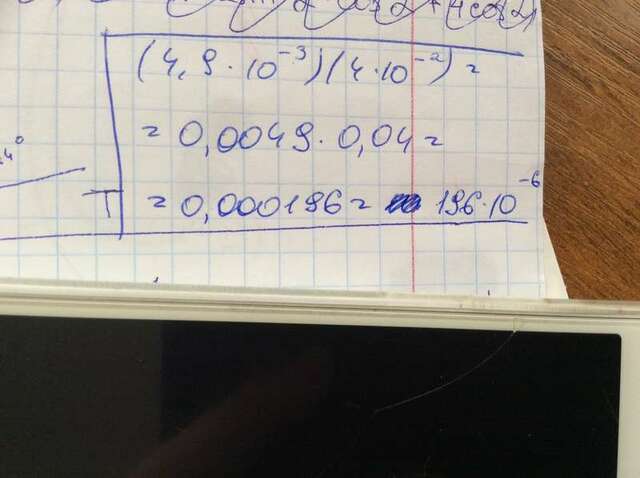 (4,9·10⁻³)(4·10⁻²)=
= 0,0049·0,04=
= 0,000196= 196·10⁻⁶